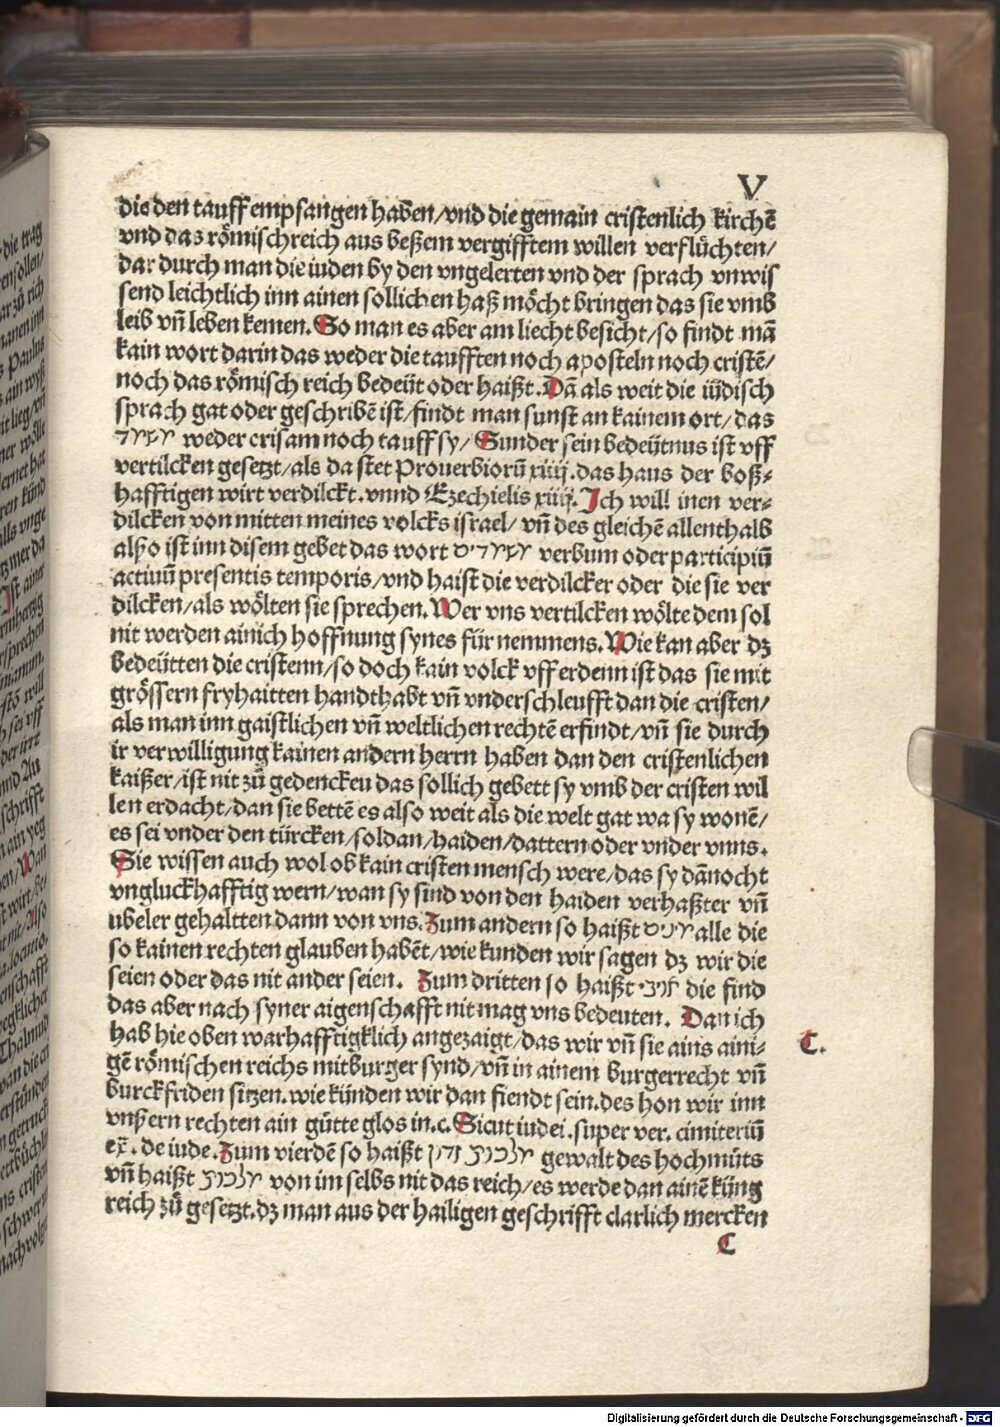 V
die den tauff empfangen haben/vnd die gemain cristenlich kirchē
vnd das römisch reich aus beßem vergifftem willen verflüchten/
dar durch man die iuden by den vngelerten vnd der sprach vnwis
send leichtlich inn ainen sollichen haß möcht bringen das sie vmb
leib vñ leben kemen. So man es aber am liecht besicht/so findt mā
kain wort darin das weder die taufften noch aposteln noch cristē/
noch das römisch reich bedeüt oder haißt. Dā als weit die iüdisch
sprach gat oder geschribē ist/findt man sunst an kainem ort/das
weder crisam noch tauff sy/ Sunder sein bedeütnus ist vff
vertilcken gesetzt/als da stet Prouerbiorū xiiij. das haus der boß⸗
hafftigen wirt verdilckt. vnnd Ezechielis xiiij. Ich will inen ver⸗
dilcken von mitten meines volcks israel/ vñ des gleichē allenthalb
alßo ist inn disem gebet das wort verbum oder participiū
actiuū presentis temporis/vnd haist die verdilcker oder die sie ver
dilcken/als wölten sie sprechen. Wer vns vertilcken wölte dem sol
nit werden ainich hoffnung synes für nemmens. Wie kan aber dz
bedeütten die cristenn/so doch kain volck vff erdenn ist das sie mit
grössern fryhaitten handthabt vñ vnderschleufft dan die cristen/
als man inn gaistlichen vñ weltlichen rechtē erfindt/vñ sie durch
ir verwilligung kainen andern herrn haben dan den cristenlichen
kaißer/ist nit zů gedencken das sollich gebett sy vmb der cristen wil
len erdacht/dan sie bettē es also weit als die welt gat wa sy wonē/
es sei vnder den türcken/soldan/haiden/dattern oder vnder vnns.
Sie wissen auch wol ob kain cristen mensch were/das sy dānocht
vngluckhafftig wern/wan sy sind von den haiden verhaßter vñ
ubeler gehaltten dann von vns. Zum andern so haißt מינים alle die
so kainen rechten glauben habēt/wie kunden wir sagen dz wir die
seien oder das nit ander seien. Zum dritten so haißt אויבי die find
das aber nach syner aigenschafft nit mag vns bedeuten. Dan ich
hab hie oben warhafftigklich angezaigt/das wir vñ sie ains aini⸗
gē römischen reichs mitburger synd/vñ in ainem burgerrecht vñ
burckfriden sitzen. wie künden wir dan fiendt sein. des hon wir inn
vnßern rechten ain gůtte glos in. c. Sicut iudei. super ver. cimiteriū
ex̄. de iude. Zum vierdē so haißt מלכות זדון gewalt des hochmůts
vñ haißt מלכות von im selbs nit das reich/es werde dan ainē küng
reich zů gesetzt. dz man aus der hailigen geschrifft clarlich mercken
C
C.
Digitalisierung gefördert durch die Deutsche Forschungsgemeinschaft - DFG